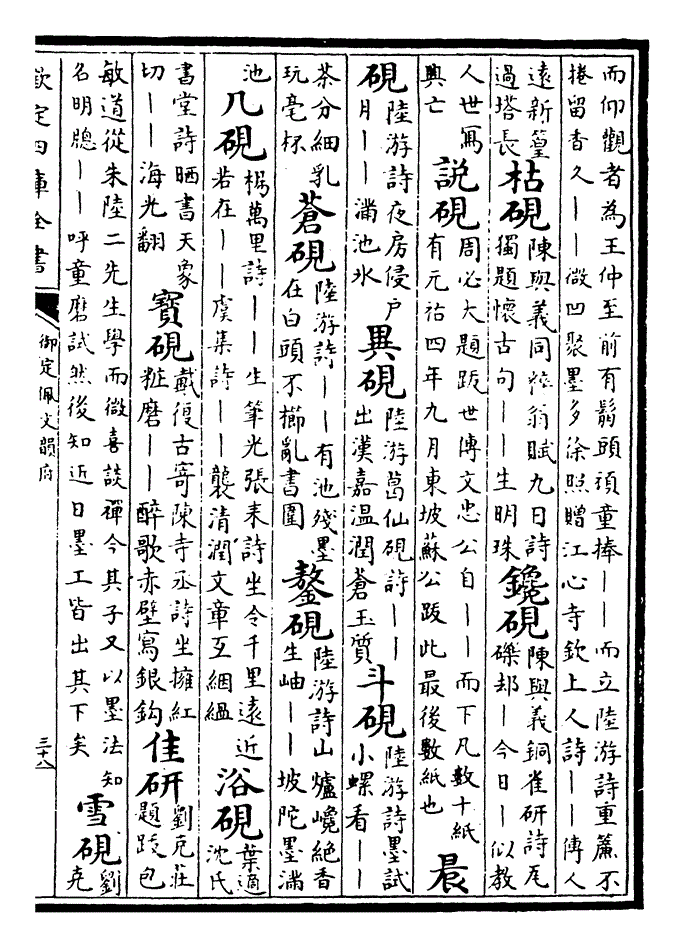 而仰觀者為王仲至前有鬅頭頑童捧——而立陸游詩重簾不
捲留香久——微凹聚墨多徐照贈江心寺欽上人詩——傳人
遠新篁
過塔長
枯硯
陳與義同粹翁賦九日詩
獨題懷古句——生明珠
鑱硯
陳與義銅雀研詩瓦
礫却—今日—以教
人世寫
興亡
說硯
周必大題跋世傳文忠公自——而下凡數十紙
有元祐四年九月東坡蘇公跋此最後數紙也
晨
硯
陸游詩夜房侵戶
月——滿池氷
異硯
陸游葛仙硯詩——
出漢嘉溫潤蒼玉質
斗硯
陸游詩墨試
小螺看——
茶分細乳
玩毫杯
蒼硯
陸游詩——有池殘墨
在白頭不櫛亂書圍
鏊硯
陸游詩山爐巉絕香
生岫——坡陀墨滿
池
几硯
楊萬里詩——生筆光張耒詩坐令千里遠近
若在——虞集詩——襲清潤文章互絪縕
浴硯
葉適
沈氏
書堂詩晒書天象
切——海光翻
寶硯
戴復古寄陳寺丞詩坐擁紅
粧磨——醉歌赤壁寫銀鈎
佳研
劉克莊
題跋包
敏道從朱陸二先生學而微喜談禪今其子又以墨法知
名明牕——呼童磨試然後知近日墨工皆出其下矣
雪硯
劉
克
欽定四庫全書
御定佩文韻府
三十八